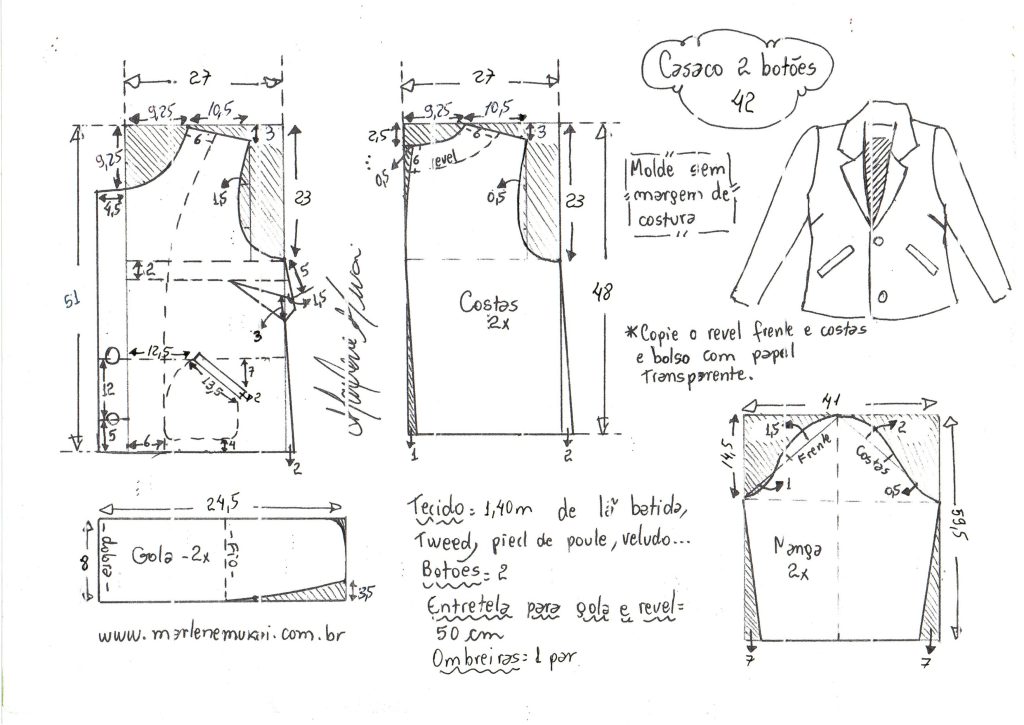 Casaco 2 botões
42
27
9,25
10,5
3
6
9,25
4,5
1,5
23
2
5
1,5
3
51
12,5
13,5
7
2
12
5
6
4
2
27
9,25
10,5
3
2,5
6
6
revel
0,5
0,5
23
48
Costas
2x
1
2
Molde sem
margem de
costura
*Copie o revel frente e costas
e bolso com papel
Transparente.
41
14,5
1,5
2
Frente
Costas
1
0,5
59,5
Manga
2x
7
7
24,5
8
-dobra-
Gola -2x
-Fio-
3,5
www.marlenemukai.com.br
Tecido = 1,40m de lã batida,
Tweed, pied de poule, veludo...
Botões = 2
Entretela para gola e revel =
50 cm
Ombreiras = 1 par.